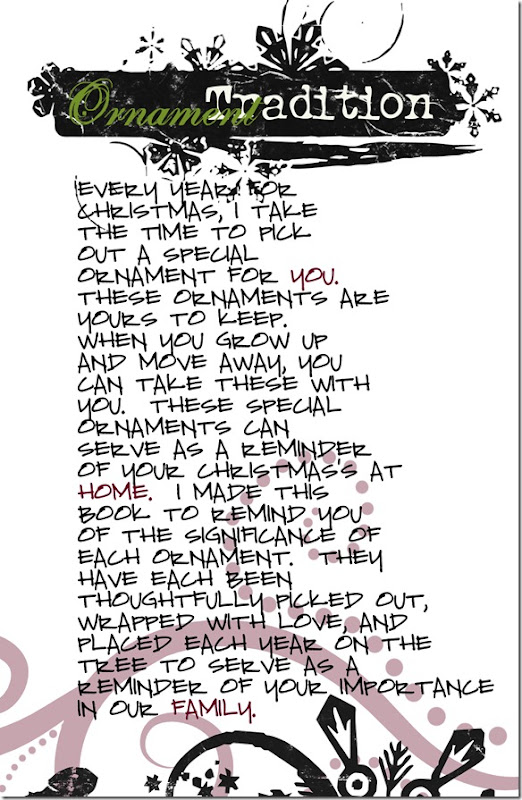 Ornament Tradition
EVERY YEAR FOR
CHRISTMAS, I TAKE
THE TIME TO PICK
OUT A SPECIAL
ORNAMENT FOR YOU.
THESE ORNAMENTS ARE
YOURS TO KEEP.
WHEN YOU GROW UP
AND MOVE AWAY, YOU
CAN TAKE THESE WITH
YOU. THESE SPECIAL
ORNAMENTS CAN
SERVE AS A REMINDER
OF YOUR CHRISTMAS'S AT
HOME. I MADE THIS
BOOK TO REMIND YOU
OF THE SIGNIFICANCE OF
EACH ORNAMENT. THEY
HAVE EACH BEEN
THOUGHTFULLY PICKED OUT,
WRAPPED WITH LOVE, AND
PLACED EACH YEAR ON THE
TREE TO SERVE AS A
REMINDER OF YOUR IMPORTANCE
IN OUR FAMILY.